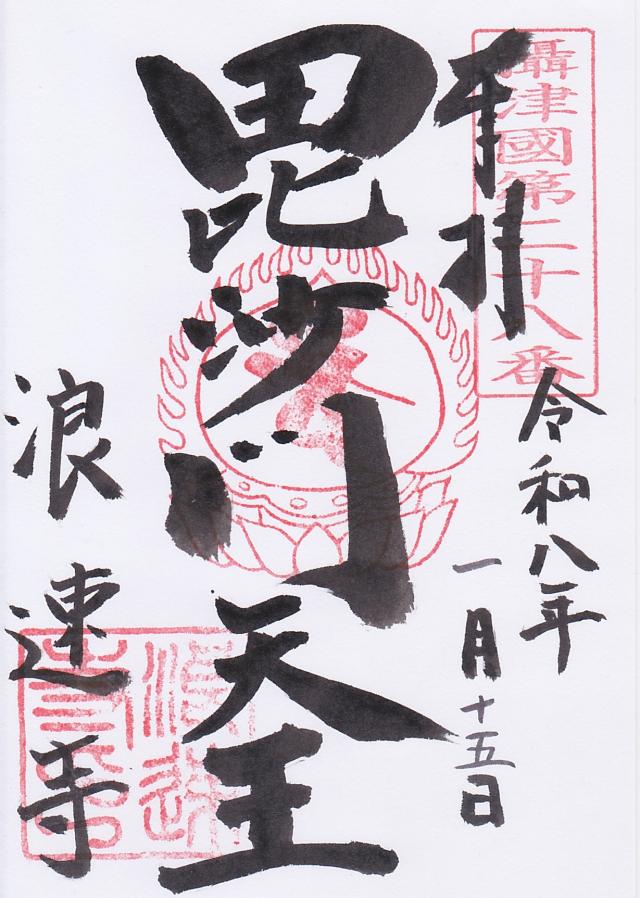 攝津國第二十八番
奉拝
令和八年
一月十五日
毘沙門天王
浪速寺